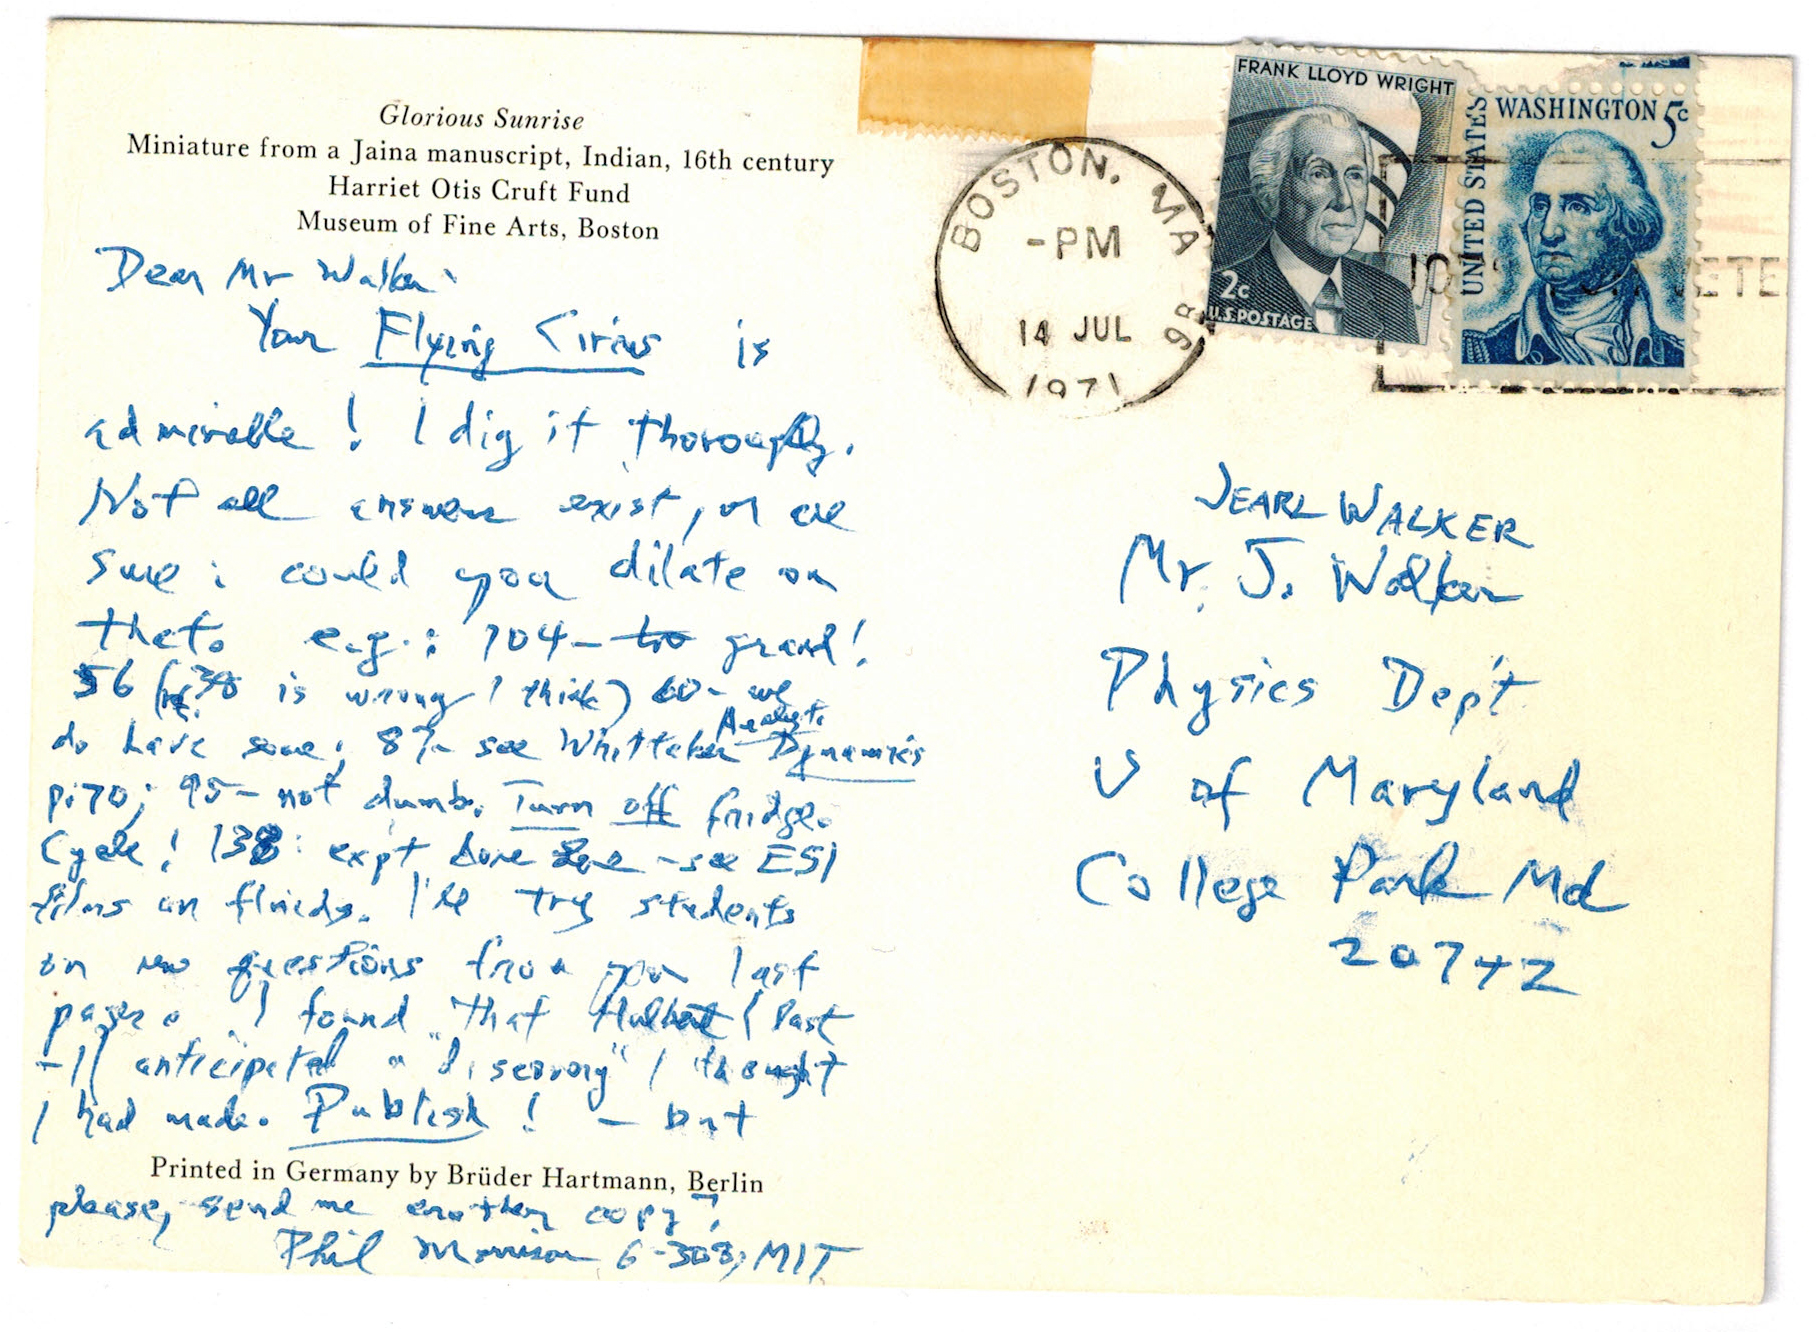 Glorious Sunrise
Miniature from a Jaina manuscript, Indian, 16th century
Harriet Otis Cruft Fund
Museum of Fine Arts, Boston
Dear Mr Walker:
Your Flying Circus is
admirable! I dig it thoroughly.
Not all answers exist, or are
sure: could you dilate on
that. e.g.: 104 – grand!
56 (38 is wrong I think) 60 – we
do have some; 87 – see Whittaker Analyt. Dynamics
p. 170; 95 – not dumb. Turn off fridge.
Cycle! 138: exp't done – see ESI
films on fluids. I'll try students
on new questions from your last
pages. I found that (last
–1) anticipated a "discovery" I thought
I had made. Publish! – but
Printed in Germany by Brüder Hartmann, Berlin
please, send me another copy?
Phil Morrison 6-308, MIT
BOSTON, MA
-PM
14 JUL
1971
FRANK LLOYD WRIGHT
2c
U.S. POSTAGE
UNITED STATES
WASHINGTON 5c
JEARL WALKER
Mr. J. Walker
Physics Dept
U of Maryland
College Park Md
20742